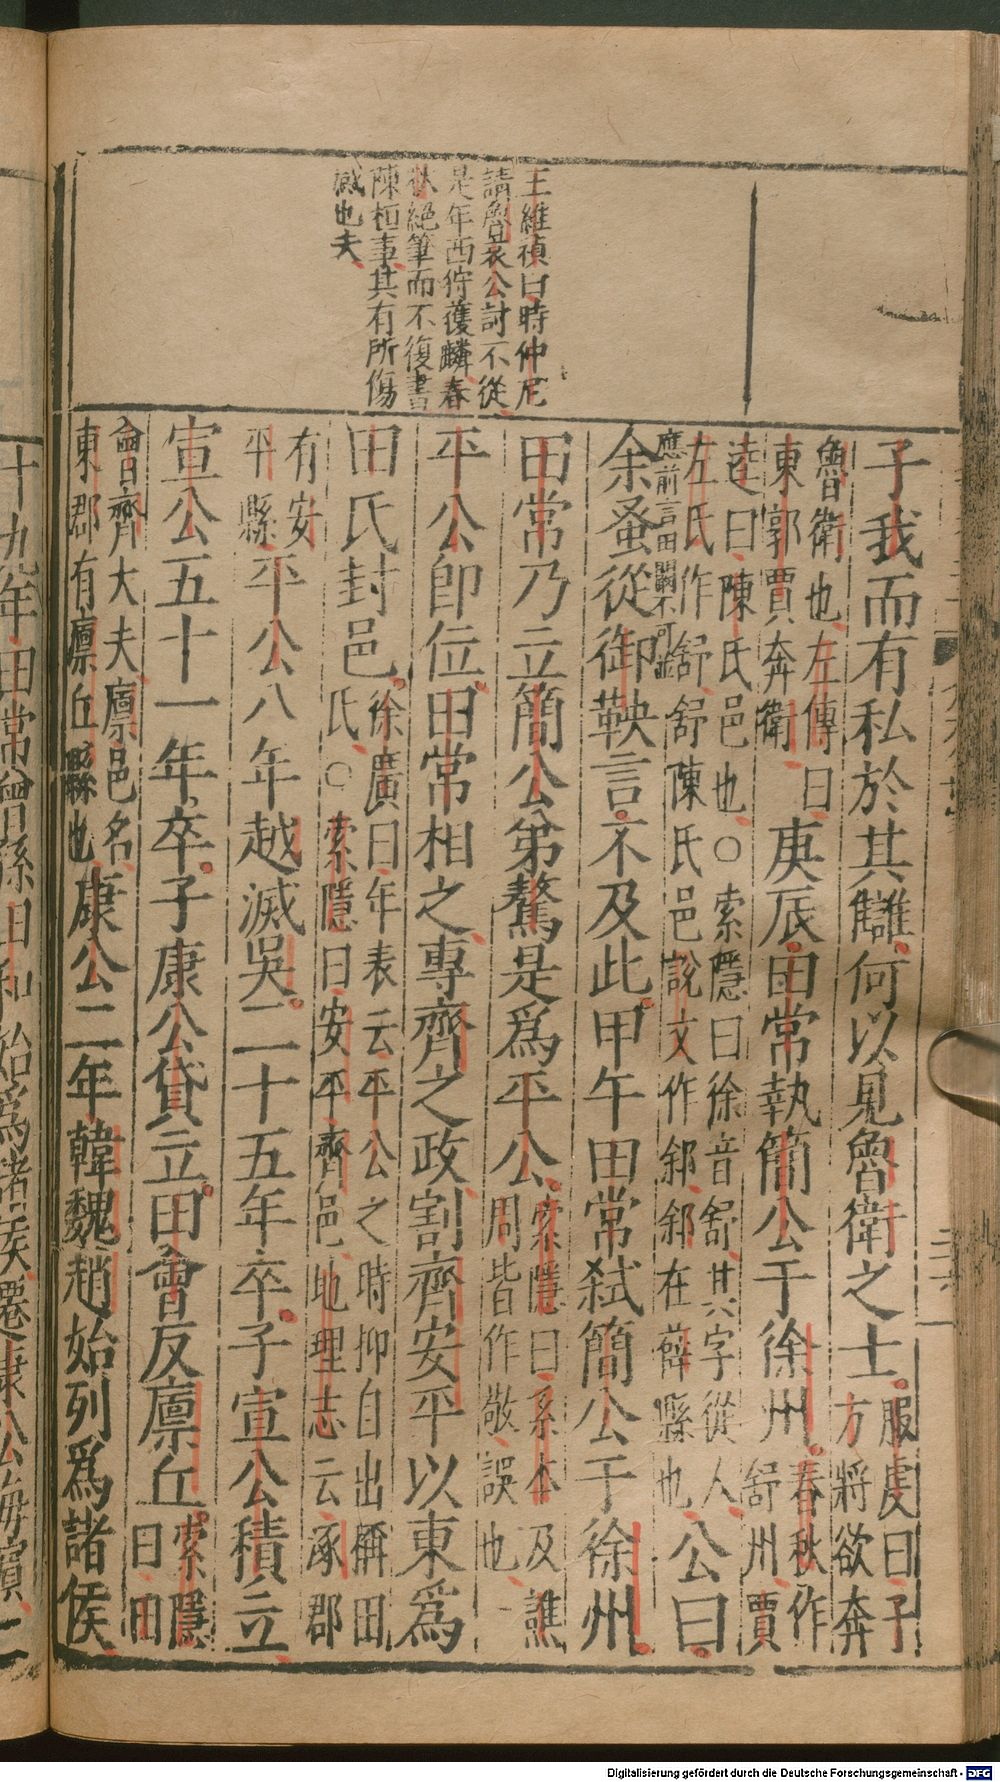 王維禎曰時仲尼
請魯哀公討不從
是年西狩獲麟春
秋絕筆而不復書
陳桓事其有所傷
感也夫
子我而有私於其讎何以見魯衛之士服虔曰子方將欲奔
魯衛也左傳曰東郭賈奔衛庚辰田常執簡公于徐州春秋作舒州賈
逵曰陳氏邑也○索隱曰徐音舒其字從人左氏作舒舒陳氏邑說文作䣄䣄在薛縣也公曰
應前言田闞不可並
余蚤從御鞅言不及此甲午田常弒簡公于徐州
田常乃立簡公弟驁是爲平公索隱曰系本及譙周皆作敬誤也
平公卽位田常相之專齊之政割齊安平以東爲
田氏封邑徐廣曰年表云平公之時抑自出稱田氏○索隱曰安平齊邑地理志云涿郡
有安平縣平公八年越滅吳二十五年卒子宣公積立
宣公五十一年卒子康公貸立田會反廩丘索隱曰田
會齊大夫廩邑名東郡有廩丘縣也康公二年韓魏趙始列爲諸侯
十九年田常曾孫田和始爲諸侯遷康公海濱二
Digitalisierung gefördert durch die Deutsche Forschungsgemeinschaft - DFG